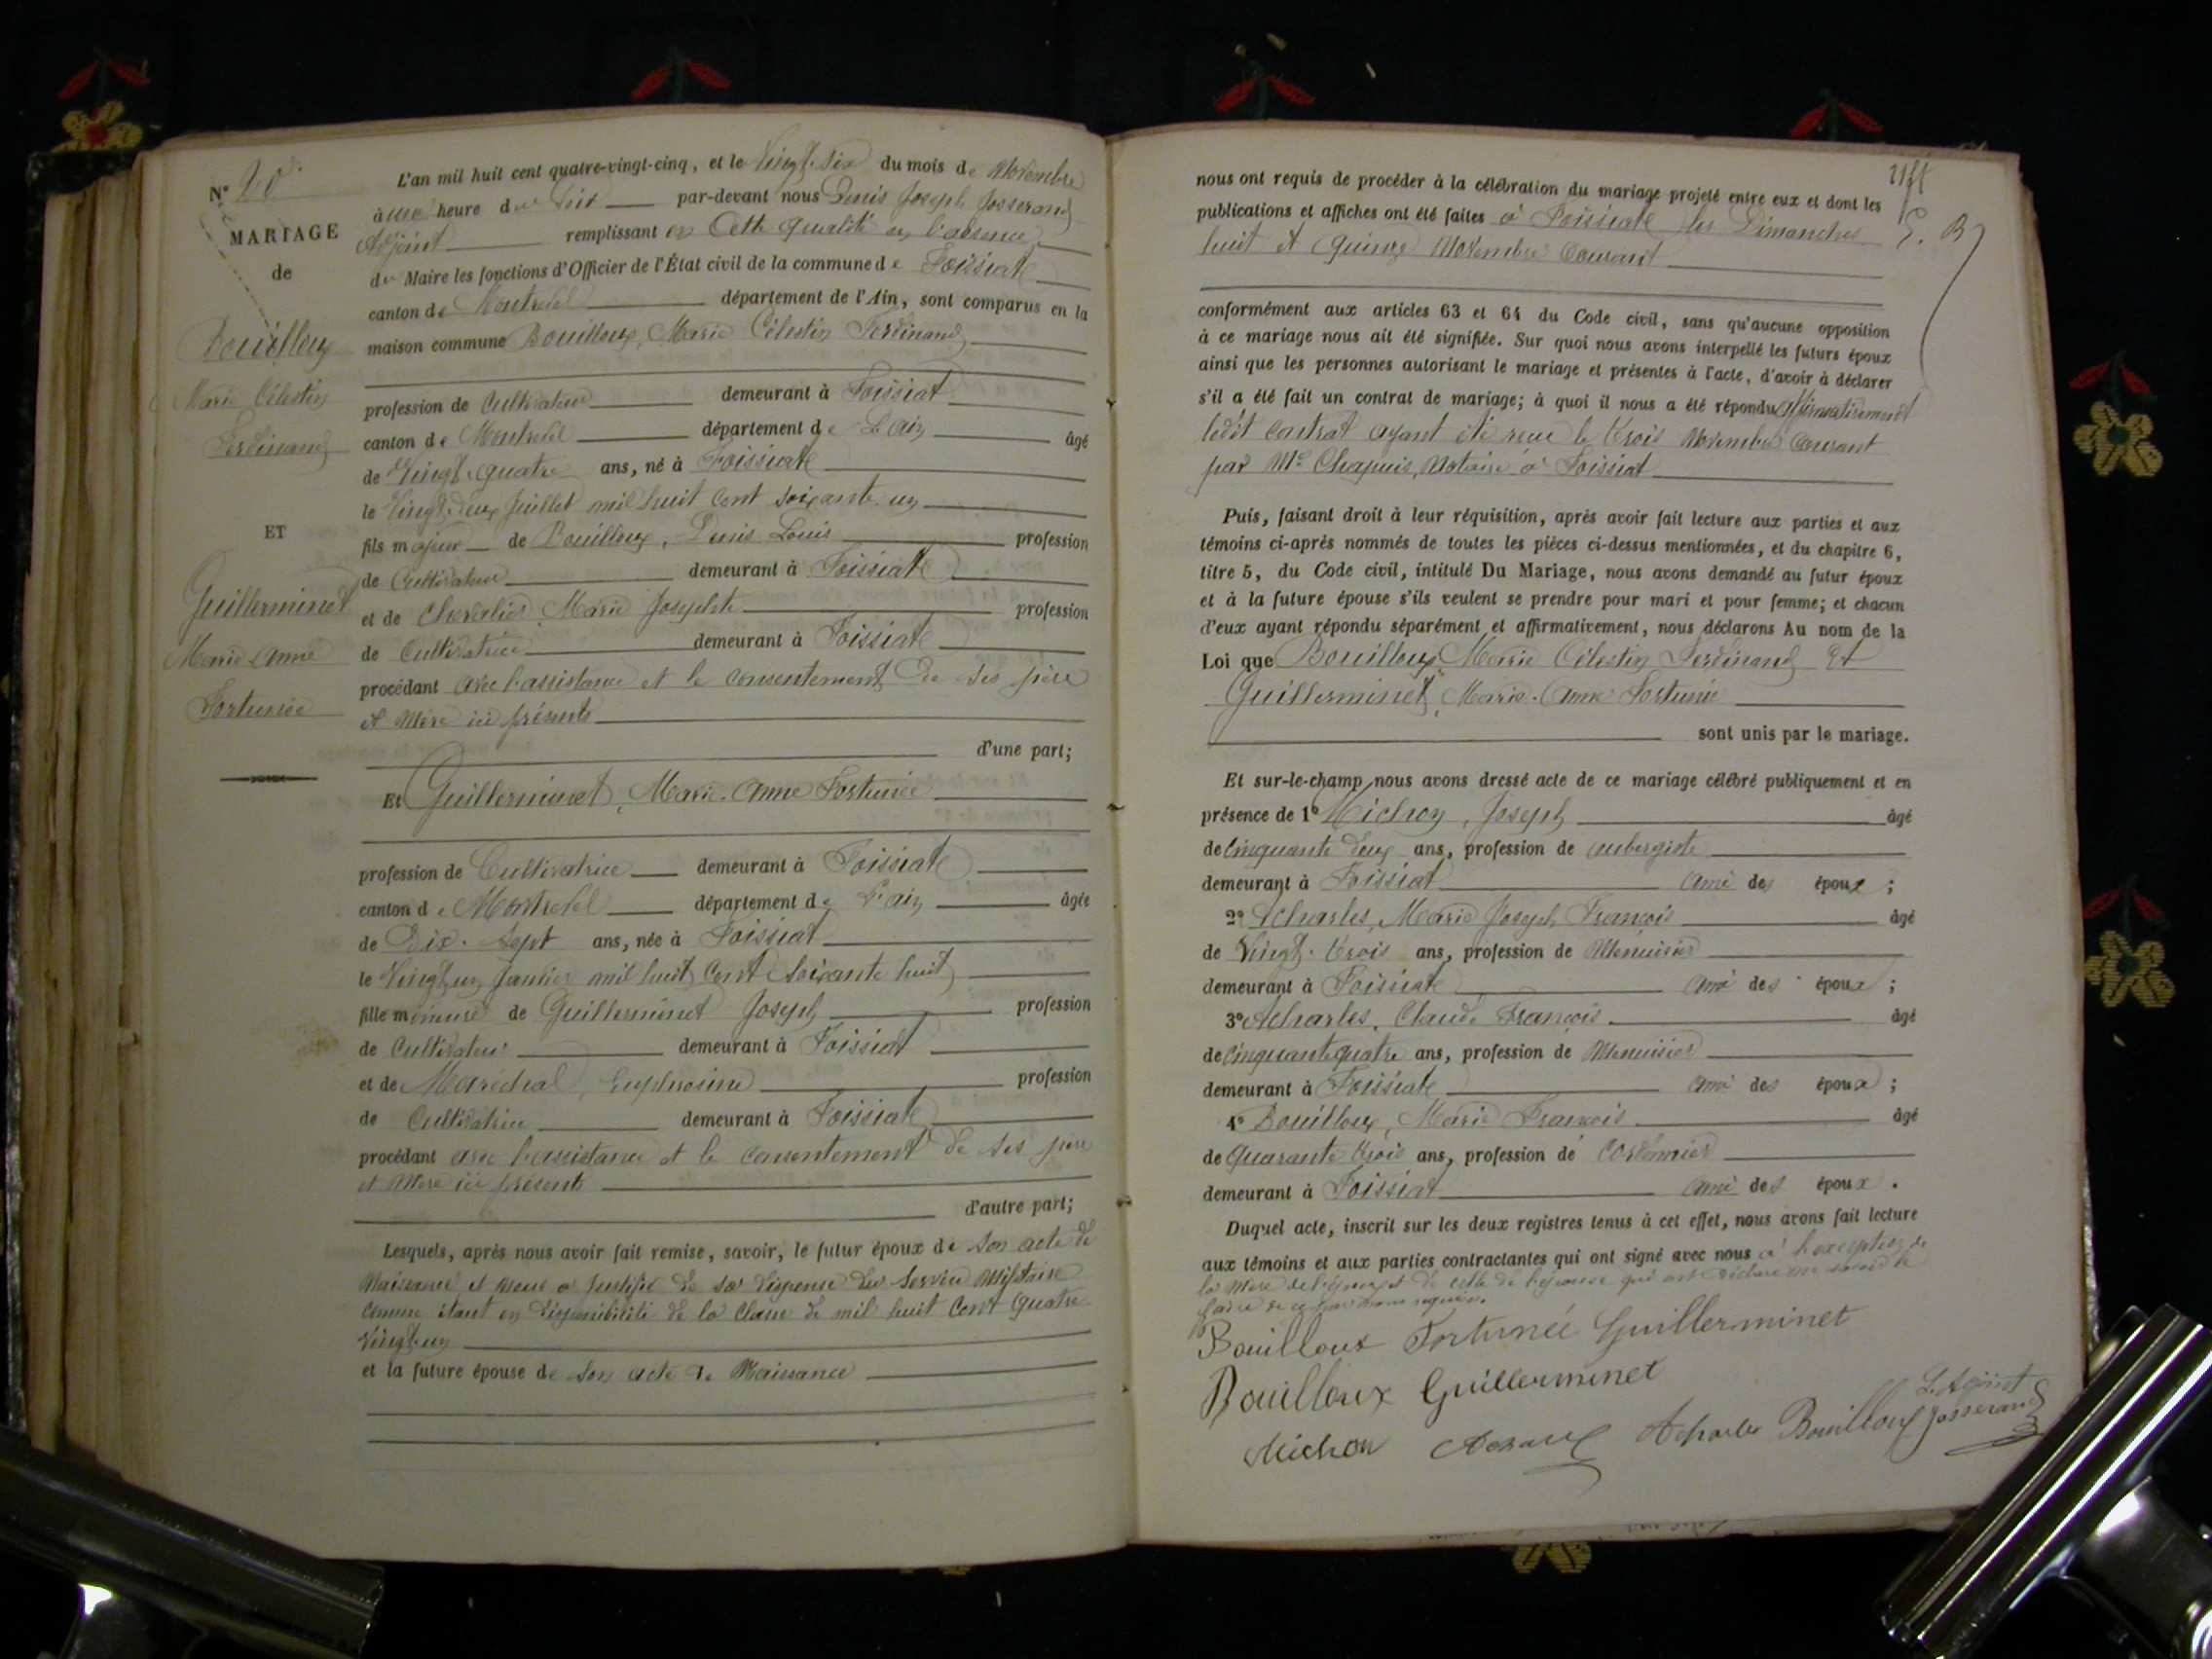 N° 20
MARIAGE
de
Bouilloux
Marie Célestin
Ferdinand
ET
Guillerminet
Marie Anne
Fortunée
L'an mil huit cent quatre-vingt-cinq, et le Vingt-six du mois de Novembre
à une heure du Soir par-devant nous Denis Joseph Josserand
Adjoint remplissant en Cette qualité en l'absence
du Maire les fonctions d'Officier de l'État civil de la commune de Foissiat
canton de Montrevel département de l'Ain, sont comparus en la
maison commune Bouilloux, Marie Célestin Ferdinand
profession de Cultivateur demeurant à Foissiat
canton de Montrevel département de L'ain âgé
de Vingt-quatre ans, né à Foissiat
le Vingt-deux Juillet mil huit cent soixante-un
fils majeur de Bouilloux, Denis Louis profession
de Cultivateur demeurant à Foissiat
et de Chevalier, Marie Josephte profession
de Cultivatrice demeurant à Foissiat
procédant avec l'assistance et le consentement de ses père
et Mère ici présents
d'une part;
Et Guillerminet, Marie-Anne Fortunée
profession de Cultivatrice demeurant à Foissiat
canton de Montrevel département de L'ain âgée
de Dix-Sept ans, née à Foissiat
le Vingt-un Janvier mil huit Cent Soixante huit
fille mineure de Guillerminet Joseph profession
de Cultivateur demeurant à Foissiat
et de Maréchal, Euphrosine profession
de Cultivatrice demeurant à Foissiat
procédant avec l'assistance et le consentement de ses père
et Mère ici présents
d'autre part;
Lesquels, après nous avoir fait remise, savoir, le futur époux de son acte de
Naissance et nous a Justifié de sa dispense du Service Militaire
comme étant en disponibilité de la classe de mil huit Cent Quatre
Vingt-un
et la future épouse de son acte de Naissance
nous ont requis de procéder à la célébration du mariage projeté entre eux et dont les
publications et affiches ont été faites à Foissiat les Dimanches
huit et quinze Novembre Courant
conformément aux articles 63 et 64 du Code civil, sans qu'aucune opposition
à ce mariage nous ait été signifiée. Sur quoi nous avons interpellé les futurs époux
ainsi que les personnes autorisant le mariage et présentes à l'acte, d'avoir à déclarer
s'il a été fait un contrat de mariage; à quoi il nous a été répondu affirmativement
ledit contrat ayant été reçu le trois Novembre Courant
par Me Chapuis, Notaire à Foissiat
Puis, faisant droit à leur réquisition, après avoir fait lecture aux parties et aux
témoins ci-après nommés de toutes les pièces ci-dessus mentionnées, et du chapitre 6,
titre 5, du Code civil, intitulé Du Mariage, nous avons demandé au futur époux
et à la future épouse s'ils veulent se prendre pour mari et pour femme; et chacun
d'eux ayant répondu séparément et affirmativement, nous déclarons Au nom de la
Loi que Bouilloux, Marie Célestin Ferdinand Et
Guillerminet, Marie-Anne Fortunée
sont unis par le mariage.
Et sur-le-champ nous avons dressé acte de ce mariage célébré publiquement et en
présence de 1° Michon, Joseph âgé
de Cinquante deux ans, profession de aubergiste
demeurant à Foissiat ami des époux;
2° Acharles, Marie Joseph François âgé
de Vingt-trois ans, profession de Menuisier
demeurant à Foissiat ami des époux;
3° Acharles, Claude François âgé
de Cinquante quatre ans, profession de Menuisier
demeurant à Foissiat ami des époux;
4° Bouilloux, Marie François âgé
de Quarante trois ans, profession de Cordonnier
demeurant à Foissiat ami des époux.
Duquel acte, inscrit sur les deux registres tenus à cet effet, nous avons fait lecture
aux témoins et aux parties contractantes qui ont signé avec nous à l'exception de
la Mère de l'époux et de celle de l'épouse qui ont déclaré ne savoir le
faire de ce par nous requis.
Bouilloux Fortunée Guillerminet
Bouilloux Guillerminet
Michon Acharles Bouilloux L'Adjoint
Josserand